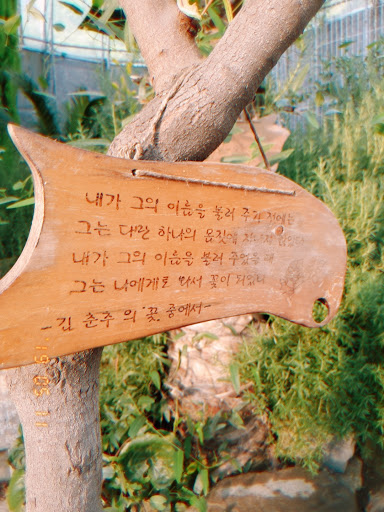 내가 그의 이름을 불러 주기 전에는
그는 다만 하나의 몸짓에 지나지 않았다
내가 그의 이름을 불러 주었을 때
그는 나에게로 와서 꽃이 되었다
- 김 춘수 의 '꽃' 중에서 -